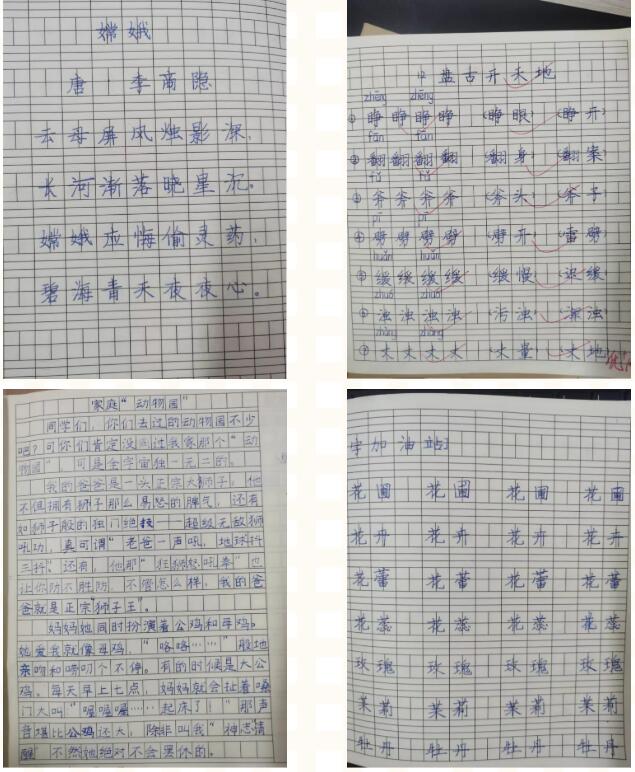 嫦娥
唐 李商隐
云母屏风烛影深,
长河渐落晓星沉。
嫦娥应悔偷灵药,
碧海青天夜夜心。
12 盘古开天地
zhēng zhēng
① 睁 睁 睁 睁 (睁眼) (睁开)
fān fān
② 翻 翻 翻 翻 (翻身) (翻案)
fǔ fǔ
③ 斧 斧 斧 斧 (斧头) (斧子)
pī pī
④ 劈 劈 劈 劈 (劈开) (雷劈)
huǎn huǎn
⑤ 缓 缓 缓 缓 (缓慢) (迟缓)
zhuó zhuó
⑥ 浊 浊 浊 浊 (污浊) (浑浊)
zhàng zhàng
⑦ 丈 丈 丈 丈 (丈量) (丈地)
优
家庭“动物园”
同学们,你们去过的动物园不少
吧?可你们肯定没去过我家那个“动
物园”,可是全宇宙独一无二的。
我的爸爸是一头正宗大狮子,他
不但拥有狮子那么易怒的脾气,还有
如狮子般的独门绝技——超级无敌狮
吼功,真可谓“老爸一声吼,地球抖
三抖”。还有,他那“狂狮怒吼拳”也
让你防不胜防。不管怎么样,我的爸
爸就是正宗“狮子王”。
妈妈她同时扮演着公鸡和母鸡。
她爱我就像母鸡,“咯咯……”般地
亲吻和唠叨个不停。有的时候是大公
鸡。每天早上七点,妈妈就会扯着嗓
门大叫“喔喔喔……起床了!”那声
音堪比公鸡还大,除非叫我“神志清
醒”不然她绝对不会罢休的。
字加油站
花圃 花圃 花圃 花圃
花卉 花卉 花卉 花卉
花蕾 花蕾 花蕾 花蕾
花蕊 花蕊 花蕊 花蕊
玫瑰 玫瑰 玫瑰 玫瑰
茉莉 茉莉 茉莉 茉莉
牡丹 牡丹 牡丹 牡丹